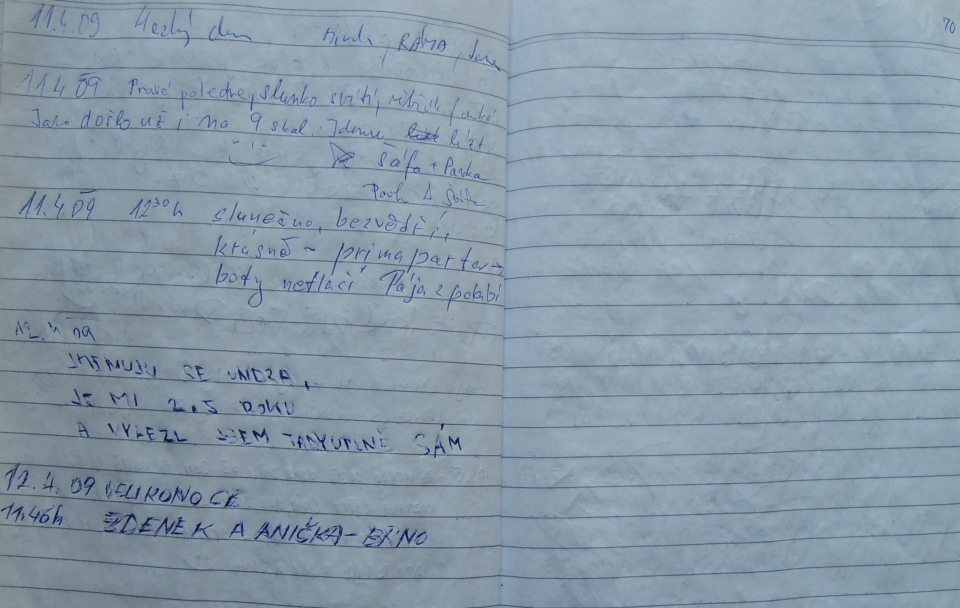 11.4.09 Hezký den Jirda, RAMA, Jana
11.4.09 Pravé poledne, slunko svítí, větřík fouká
Jaro došlo už i na 9 skal. Jdeme lízt
Šáfa + Pavka
11.4.09 12³⁰h slunečno, bezvětří,
krásně ~ prima parter →
boty netlačí Pája z polabí
12.4.09
JMENUJU SE
JE MI 2,5 ROKU
A VYLEZL JSEM TADY ÚPLNĚ SÁM
12.4.09 VELIKONOCE
11.46h ZDENEK A ANIČKA - BRNO
70